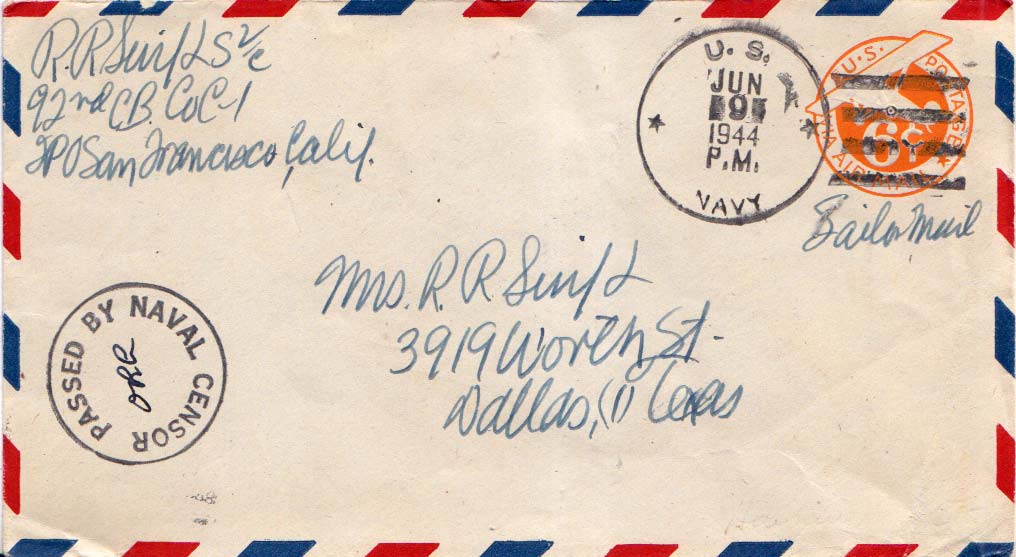 R. R. Swift S 2/c
92nd C.B. Co C-1
FPO San Francisco, Calif.
U. S.
JUN
9
1944
P.M.
NAVY
U.S. POSTAGE
6¢
VIA AIR MAIL
Sailor Mail
Mrs. R. R. Swift
3919 Worth St.
Dallas, (1) Texas
PASSED BY NAVAL CENSOR